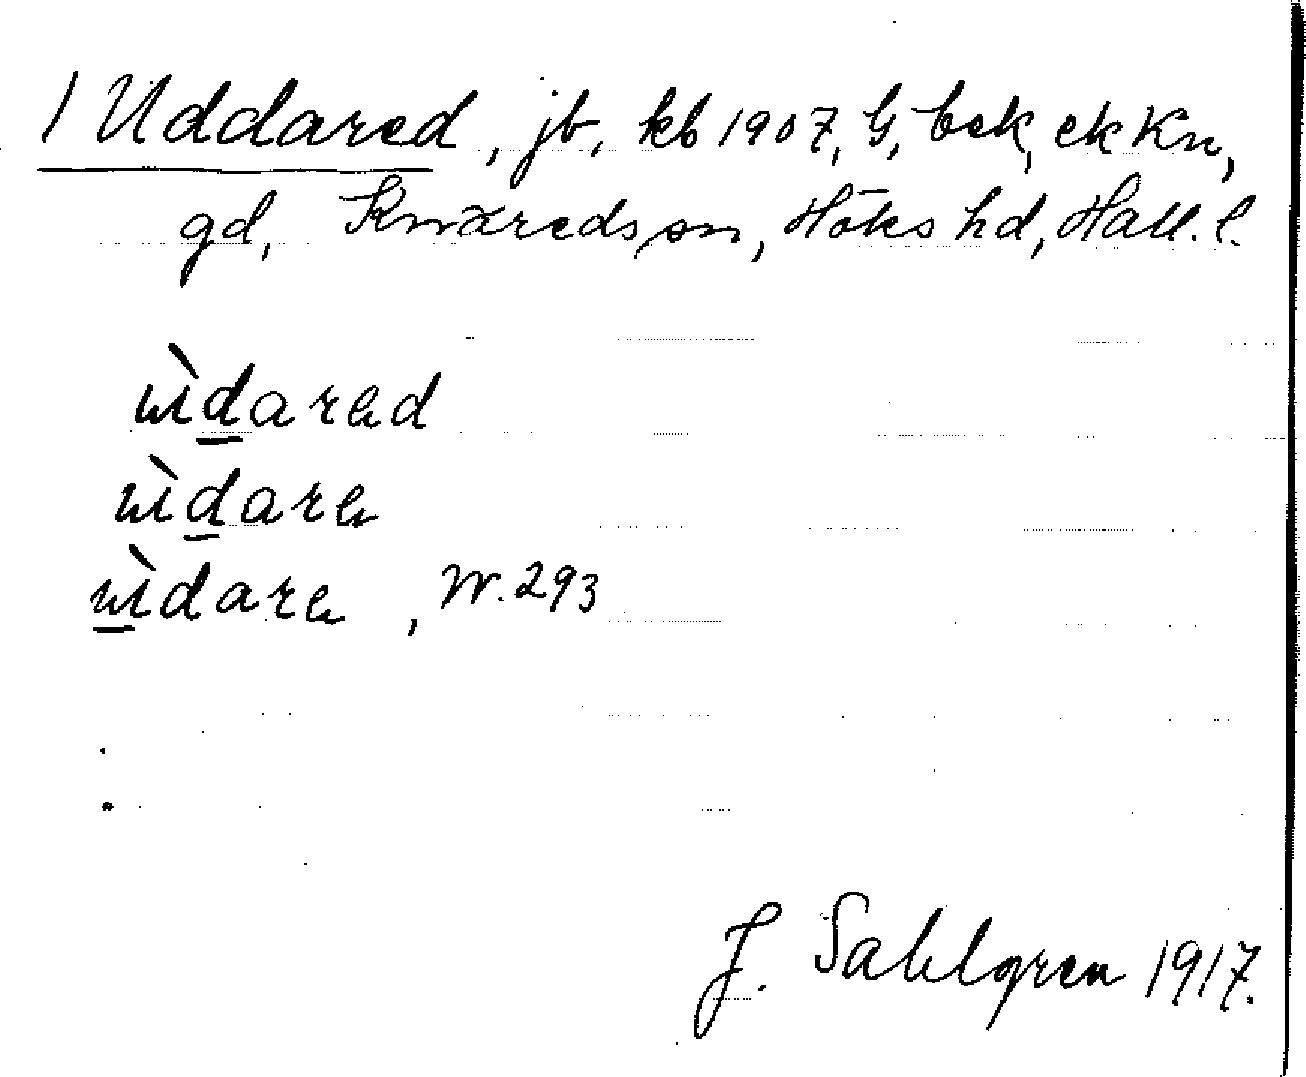 1 Uddared, jb, kb 1907, G, bek, ek Kn,
gd, Knäreds sn, Höks hd, Hall. l.
ùdarɘd
ùdarɘ
ùdarɘ, W. 293
J. Sahlgren 1917.